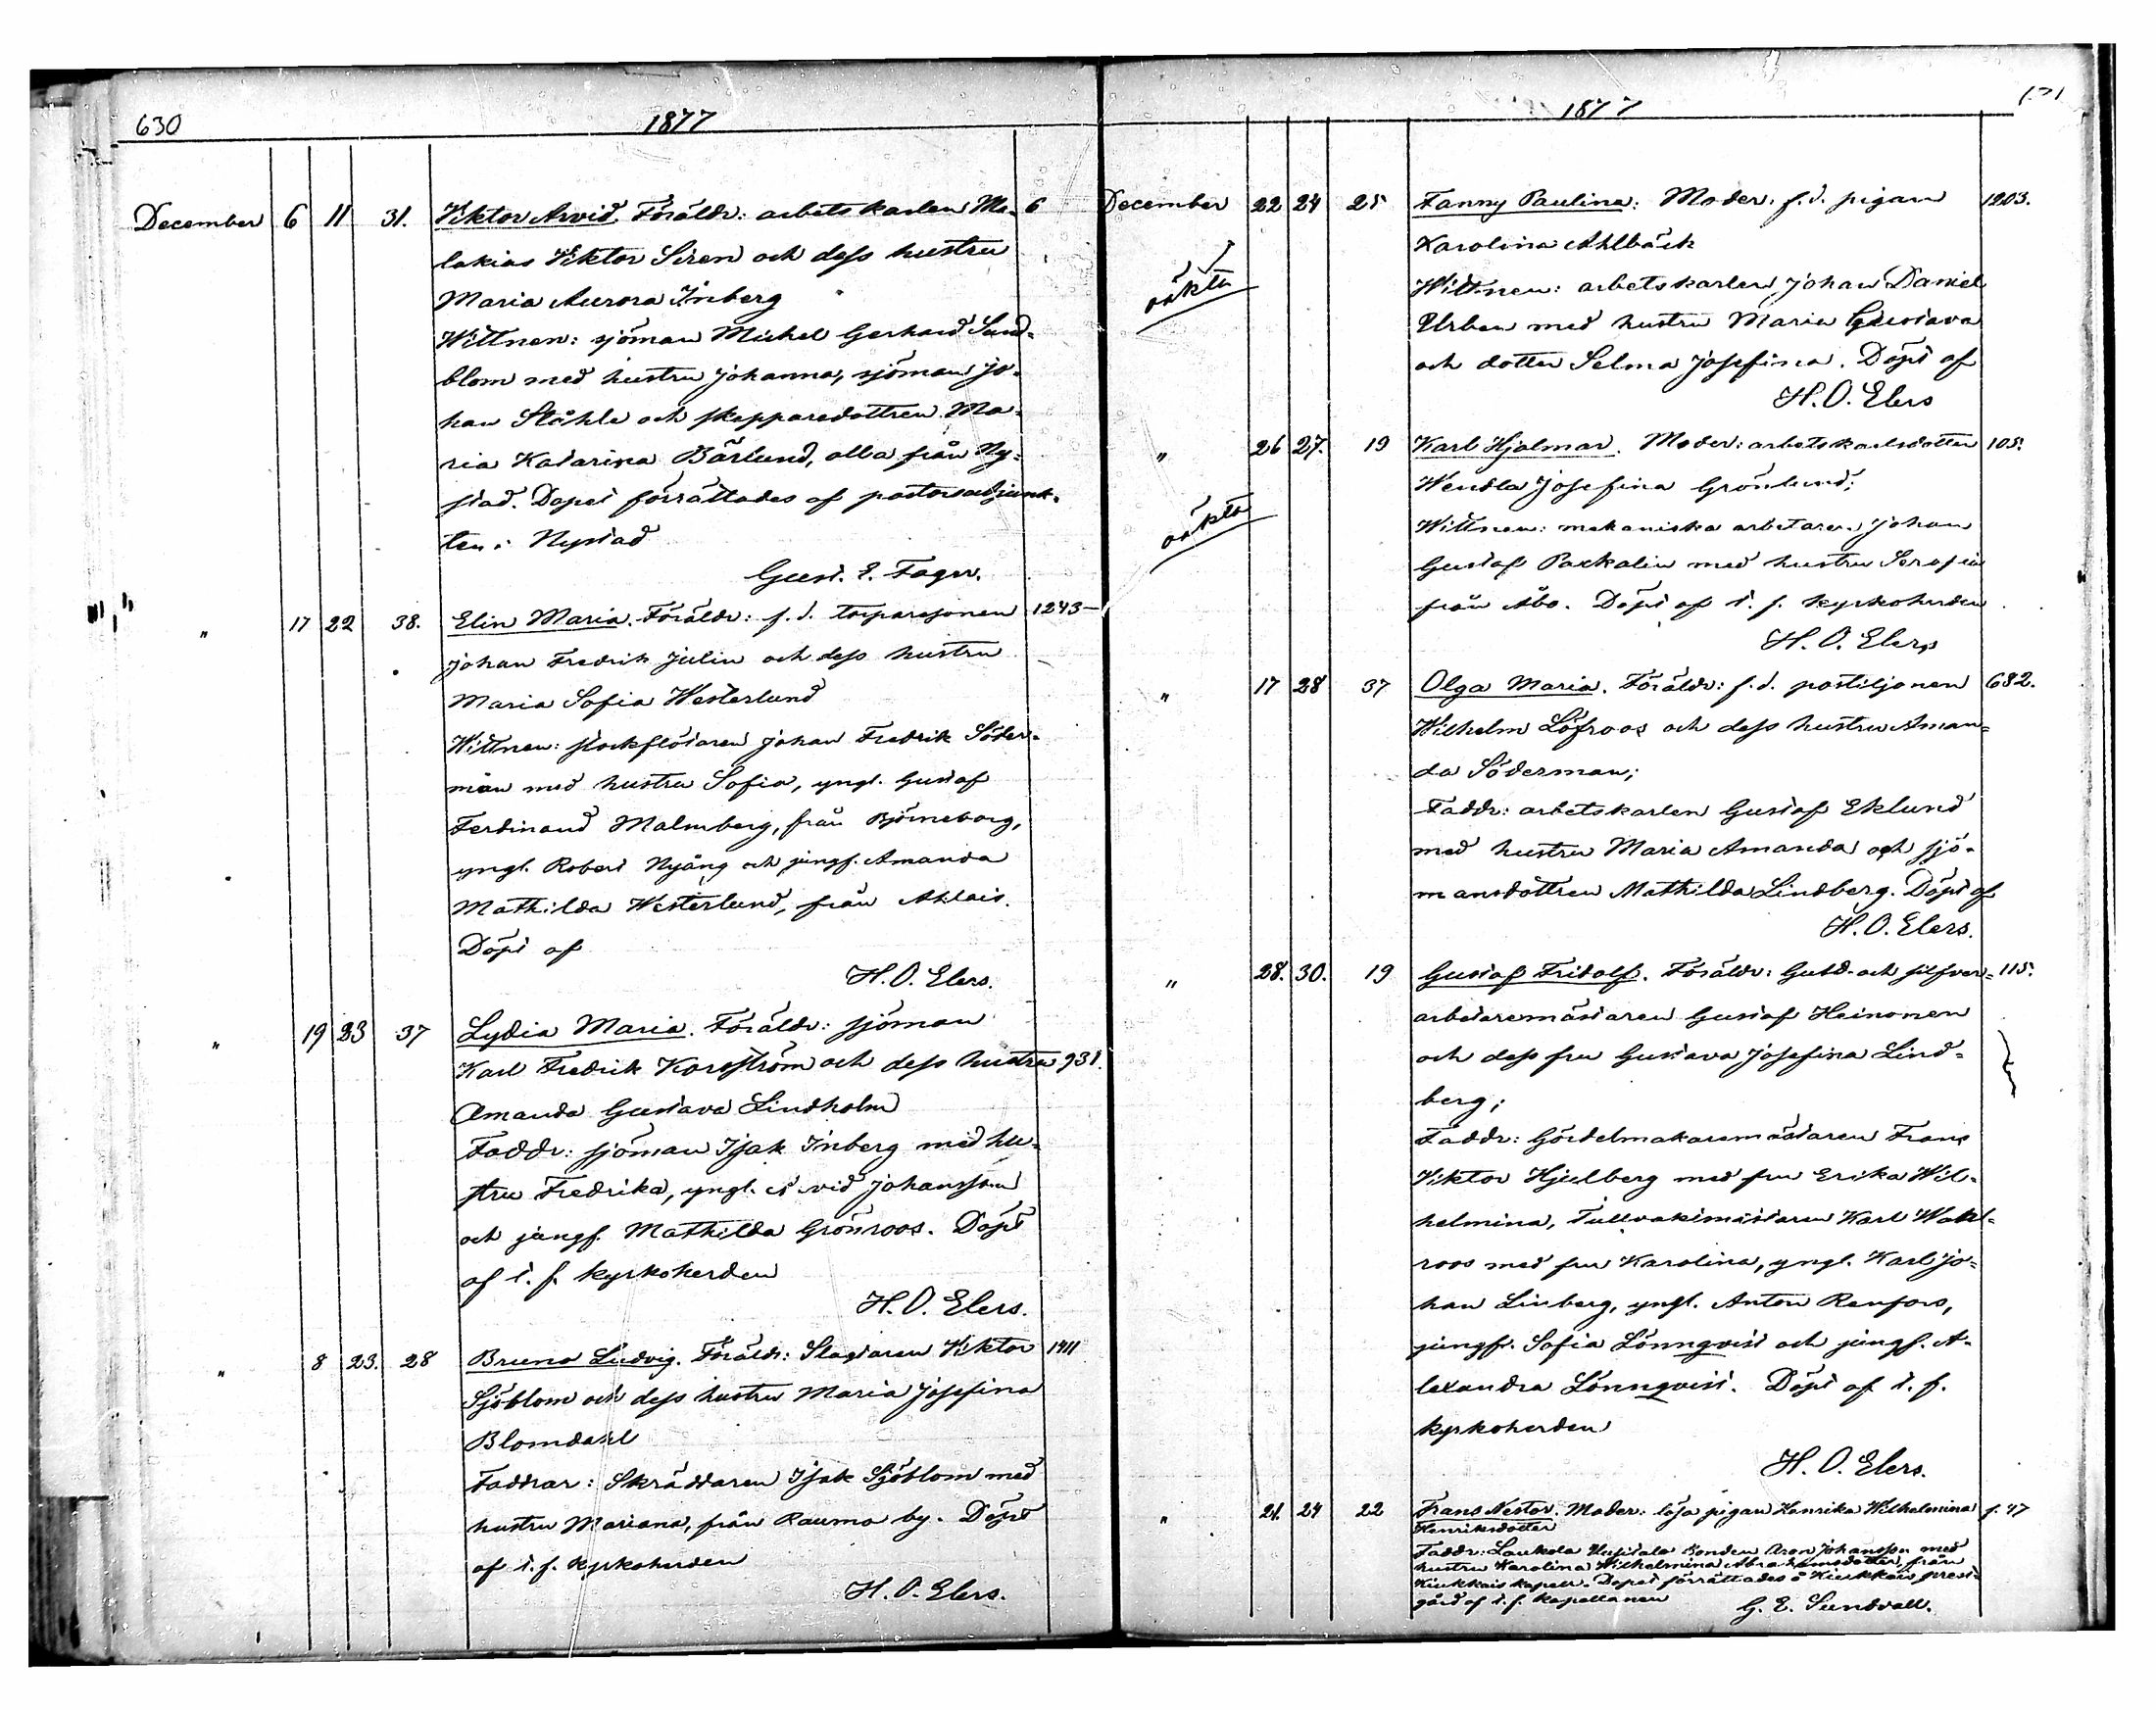 630
1877
December 6 11 31. Viktor Arvid. Föräldr: arbetskarlen Ma- 6
lakias Viktor Siren och dess hustru
Maria Aurora Inberg
Wittnen: sjöman Michel Gerhard Sund-
blom med hustru Johanna, sjöman Jo-
han Ståhle och skepparedottren Ma-
ria Katarina Bärlund, alla från Ny-
stad. Dopet förrättades af pastorsadjunk-
ten i Nystad
Gust. E. Fager.
" 17 22 38. Elin Maria. Föräldr: f.d. torparesonen 1243
Johan Fredrik Julin och dess hustru
Maria Sofia Westerlund
Wittnen: stockflötaren Johan Fredrik Söder-
man med hustru Sofia, yngl. Gustaf
Ferdinand Malmberg, från Björneborg,
yngl. Robert Nyäng och jungf. Amanda
Mathilda Westerlund, från Ahlais.
Döpt af
H. O. Elers.
" 19 23 37 Lydia Maria. Föräldr: sjöman
Karl Fredrik Korsström och dess hustru 931.
Amanda Gustava Lindholm
Faddr: sjöman Isak Inberg med hu-
stru Fredrika, yngl. Johansson
och jungf. Mathilda Grönroos. Döpt
af t. f. kyrkoherden
H. O. Elers.
" 8 23. 28 Bruno Ludvig. Föräldr: Slagtaren Viktor 1411
Sjöblom och dess hustru Maria Josefina
Blomdahl
Faddrar: Skräddaren Isak Sjöblom med
hustru Mariana, från Raumo by. Döpt
af t. f. kyrkoherden
H. O. Elers.
1877
December 22 24 25 Fanny Paulina: Moder: f.d. pigan 1203.
Karolina Ahlbäck
oäkta
Wittnen: arbetskarlen Johan Daniel
Urban med hustru Maria Gustava
och dotter Selma Josefina. Döpt af
H. O. Elers
" 26 27. 19 Karl Hjalmar. Moder: arbetskarlsdotter 105.
Wendla Josefina Grönlund;
oäkta
Wittnen: mekaniska arbetaren Johan
Gustaf Packalin med hustru Serafia
från Åbo. Döpt af t. f. kyrkoherden
H. O. Elers
" 17 28 37 Olga Maria. Föräldr: f.d. postiljonen 632.
Wilhelm Löfroos och dess hustru Aman-
da Söderman;
Faddr: arbetskarlen Gustaf Eklund
med hustru Maria Amanda och sjö-
mansdottren Mathilda Lindberg. Döpt af
H. O. Elers.
" 28. 30. 19 Gustaf Fridolf. Föräldr: Guld- och silfver- 115.
arbetaremästaren Gustaf Heinonen
och dess fru Gustava Josefina Lind-
berg;
Faddr: Gördelmakaremästaren Frans
Viktor Hjulberg med fru Erika Wil-
helmina, Tullvaktmästaren Karl Wahl-
roos med fru Karolina, yngl. Karl Jo-
han Linberg, yngl. Anton Renfors,
jungfr. Sofia Lönnqvist och jungf. A-
lexandra Lönnqvist. Döpt af t. f.
kyrkoherden
H. O. Elers.
" 21. 24 22 Frans Nestor. Moder: lösa pigan Henrika Wilhelmina f. 47
Henriksdotter
Faddr: Laukola Bonden Aron Johansson med
hustru Karolina Wilhelmina Abrahamsdotter, från
Kiukkais kapell. Dopet förrättades å Kiukkais prest-
gård af t. f. kapellanen G. E. Sundvall.